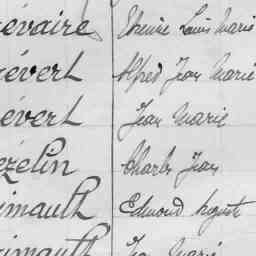 évaire Etienne Louis Marie
évert Alfred Jean Marie
évert Jean Marie
ézelin Charles Jean
imault Edmond August
imault Marie